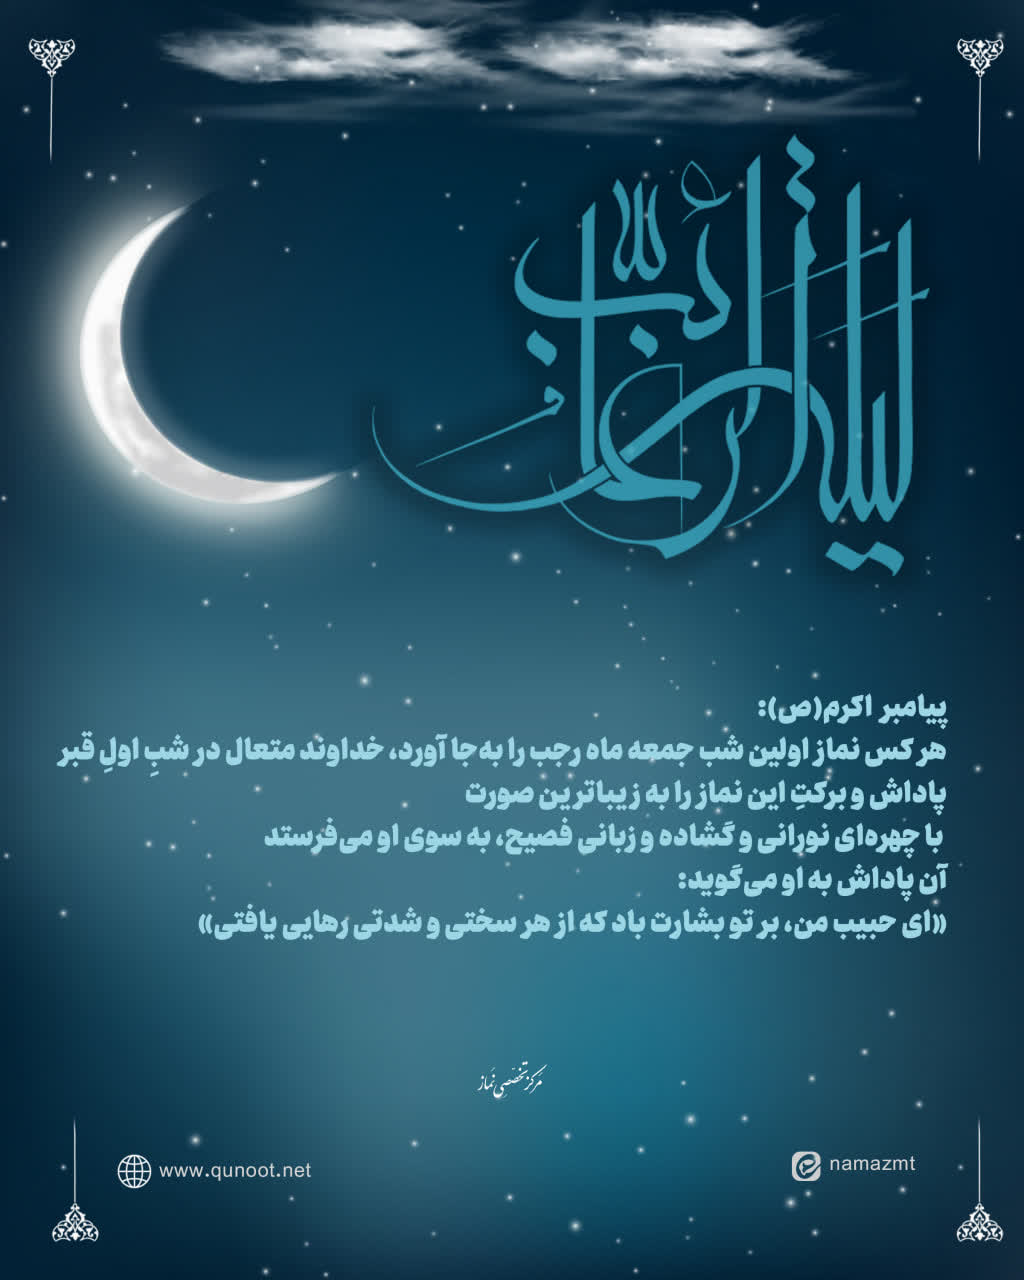 لیلة الرغائب
پیامبر اکرم(ص):
هر کس نماز اولین شب جمعه ماه رجب را به‌جا آورد، خداوند متعال در شبِ اولِ قبر
پاداش و برکتِ این نماز را به زیباترین صورت
با چهره‌ای نورانی و گشاده و زبانی فصیح، به سوی او می‌فرستد
آن پاداش به او می‌گوید:
«ای حبیب من، بر تو بشارت باد که از هر سختی و شدتی رهایی یافتی»
مرکز تخصصی نماز
www.qunoot.net
namazmt